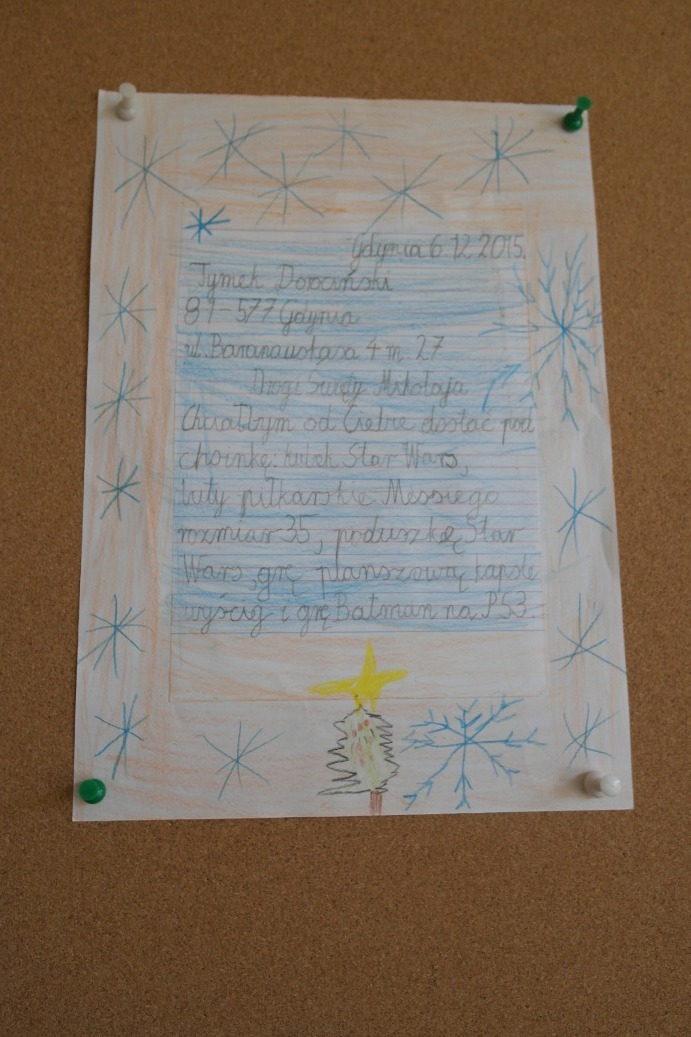 Gdynia 6.12.2015.
Tymek Dorociński
81-577 Gdynia
ul. Baranauskasa 4 m. 27
Drogi Święty Mikołaja
Chciałbym od Ciebie dostać pod
choinkę: kubek Star Wars,
buty piłkarskie Messiego
rozmiar 35, poduszkę Star
Wars, grę planszową kapsle
wyścig i grę Batman na PS3.